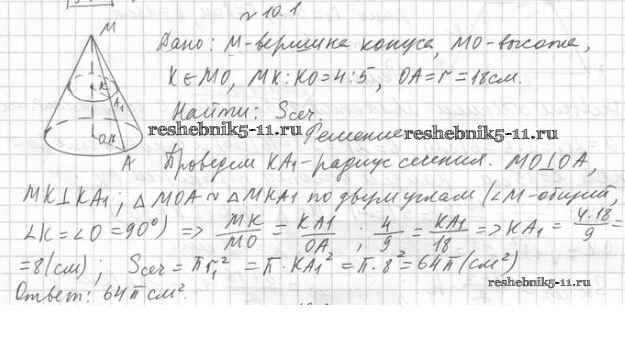 № 10.1
M
K
A1
O
A
Дано: M-вершина конуса, MO-высота,
K∈MO, MK:KO=4:5, OA=r=18см.
Найти: Sсеч.
reshebnik5-11.ru
Решение
reshebnik5-11.ru
Проведем KA₁-радиус сечения. MO⊥OA,
MK⊥KA₁; △MOA ~ △MKA₁ по двум углам (∠M-общий,
∠K=∠O=90°) => MK/MO = KA1/OA ; 4/9 = KA1/18 => KA₁ = 4·18/9 =
=8(см); Sсеч=πr₁² =π·KA₁²=π·8²=64π(см²)
Ответ: 64π см².
reshebnik5-11.ru